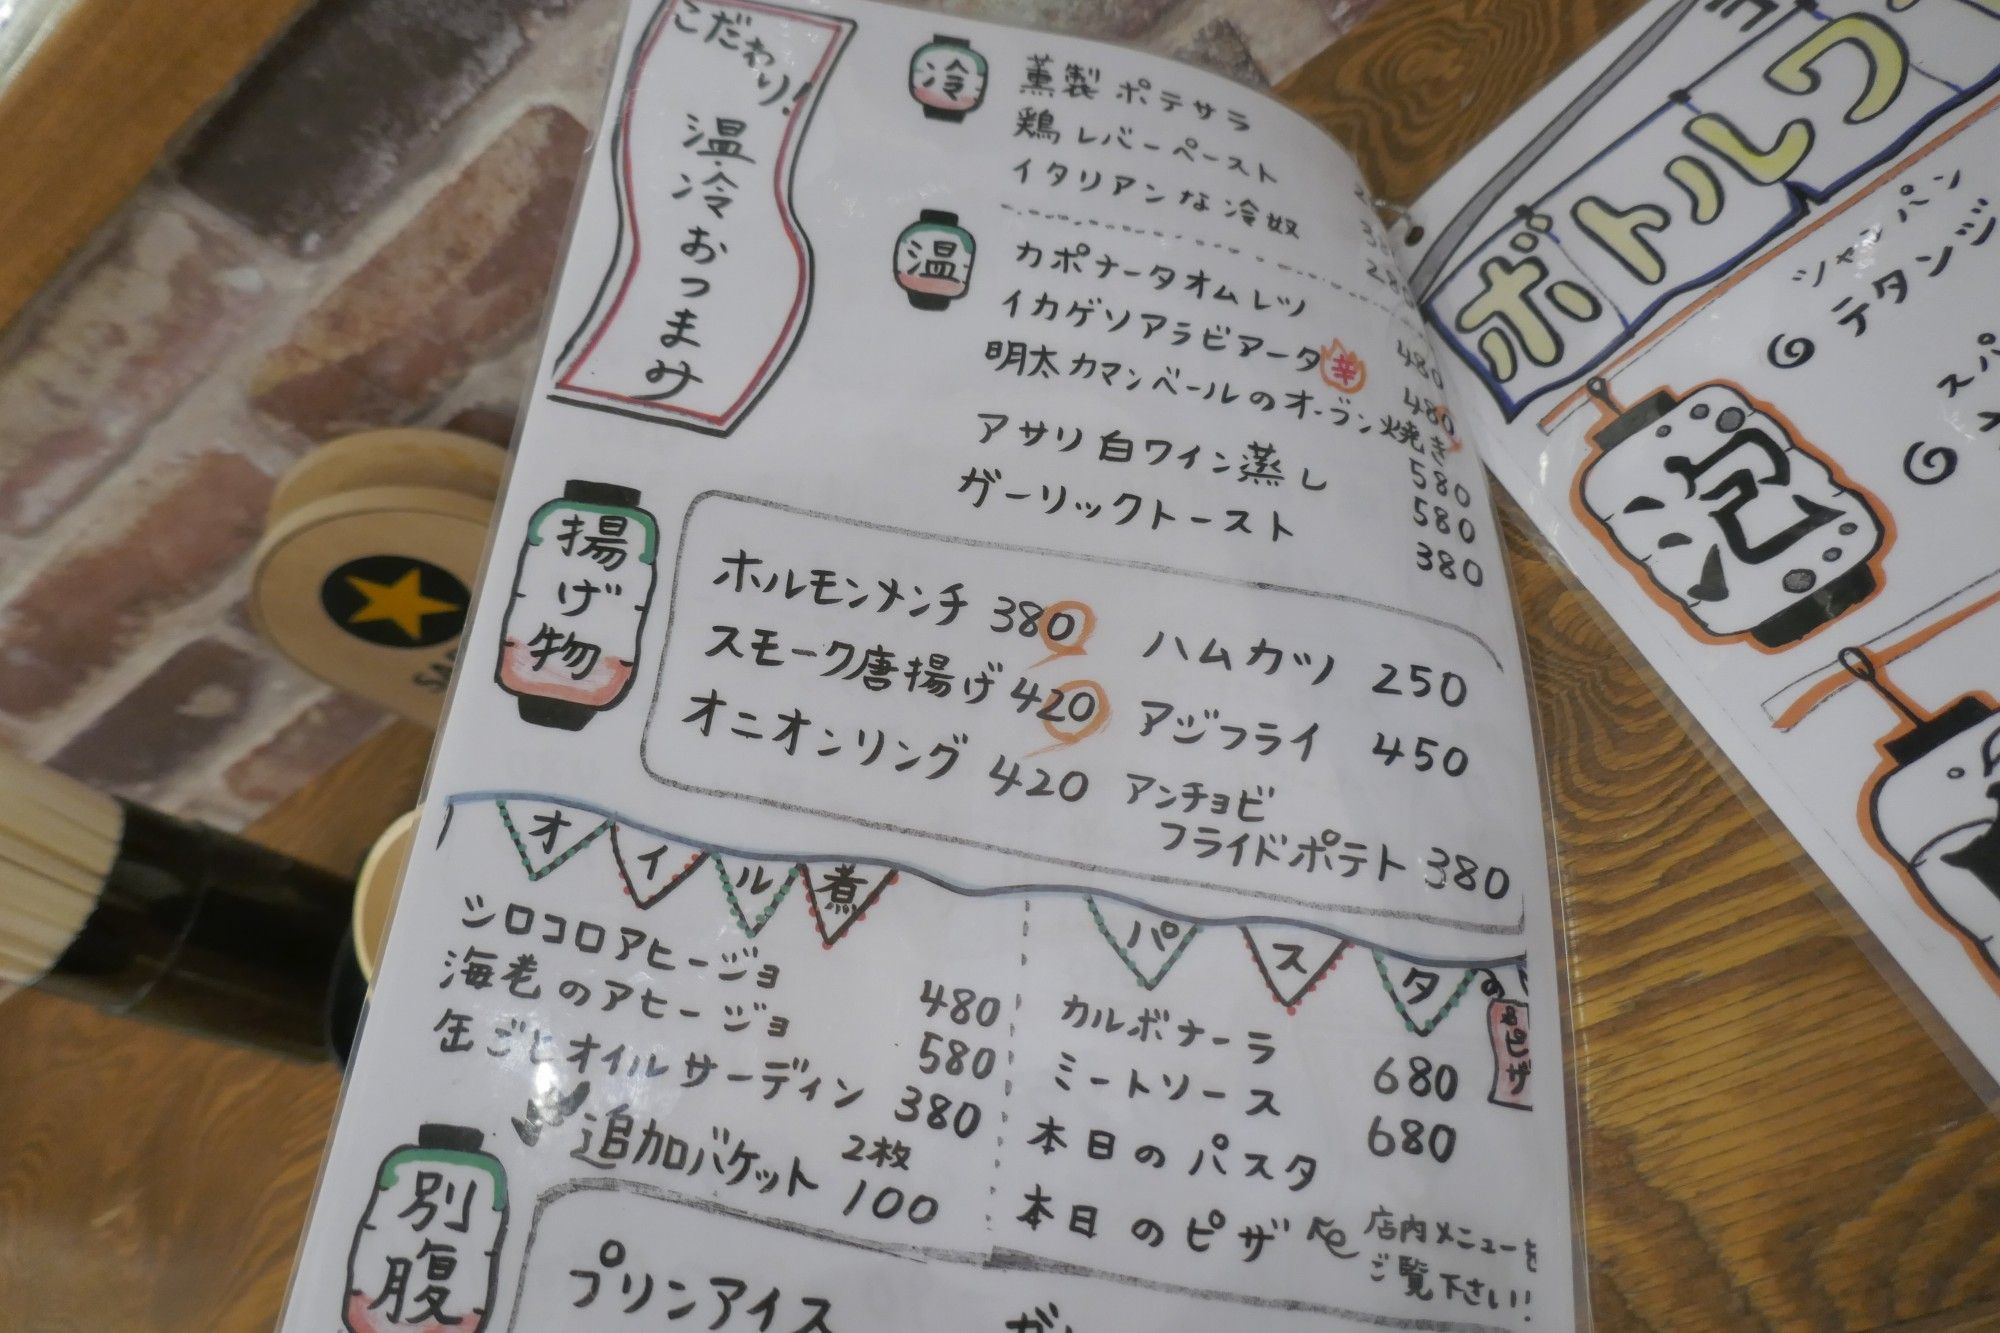 こだわり!
温冷おつまみ
冷
薫製ポテサラ
鶏レバーペースト
イタリアンな冷奴 280
温
カポナータオムレツ 480
イカゲソアラビアータ 辛 480
明太カマンベールのオーブン焼き 580
アサリ白ワイン蒸し 580
ガーリックトースト 380
揚げ物
ホルモンメンチ 380
スモーク唐揚げ 420
オニオンリング 420
ハムカツ 250
アジフライ 450
アンチョビ
フライドポテト 380
オイル煮
シロコロアヒージョ 480
海老のアヒージョ 580
缶ごとオイルサーディン 380
追加バケット 2枚 100
パスタ
&ピザ
カルボナーラ 680
ミートソース 680
本日のパスタ
本日のピザ
店内メニューを
ご覧下さい!
別腹
プリンアイス
ボトルワ
シャンパン
テタンジ
スパ
泡